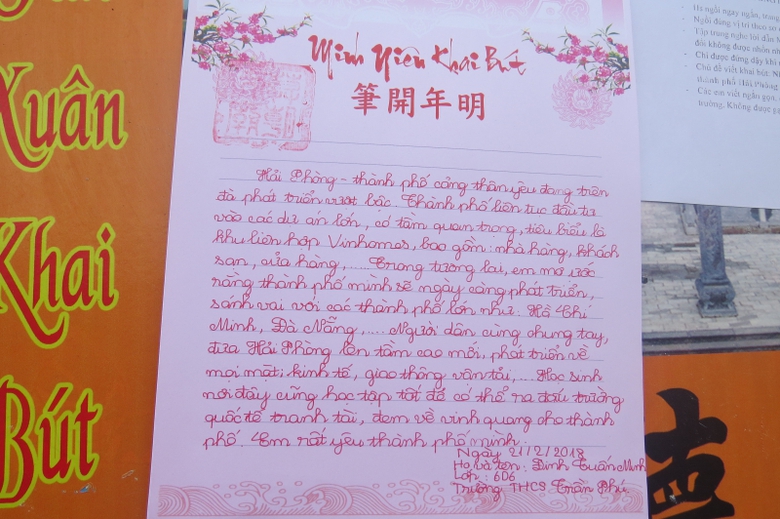 Xuân
Khai
Bút
Minh Niên Khai Bút
筆開年明
Hải Phòng - thành phố cảng thân yêu đang trên
đà phát triển vượt bậc. Thành phố liên tục đầu tư
vào các dự án lớn, có tầm quan trọng, tiêu biểu là
khu liên hợp Vinhomes, bao gồm: nhà hàng, khách
sạn, cửa hàng,.... Trong tương lai, em mơ ước
rằng thành phố mình sẽ ngày càng phát triển,
sánh vai với các thành phố lớn như: Hồ Chí
Minh, Đà Nẵng,.... Người dân cùng chung tay,
đưa Hải Phòng lên tầm cao mới, phát triển về
mọi mặt: kinh tế, giao thông vận tải,.... Học sinh
nơi đây cũng học tập tốt để có thể ra đấu trường
quốc tế tranh tài, đem về vinh quang cho thành
phố. Em rất yêu thành phố mình.
Ngày 21/2/2018
Họ và tên: Đinh Tuấn Minh
Lớp: 6D6
Trường THCS Trần Phú.
- Hs ngồi ngay ngắn, trang
- Ngồi đúng vị trí theo sự
- Tập trung nghe lời dẫn
đối không được nhốn
- Chỉ được đứng dậy khi
- Chủ đề viết khai bút:
thành phố Hải Phòng
- Các em viết ngắn gọn,
trường. Không được